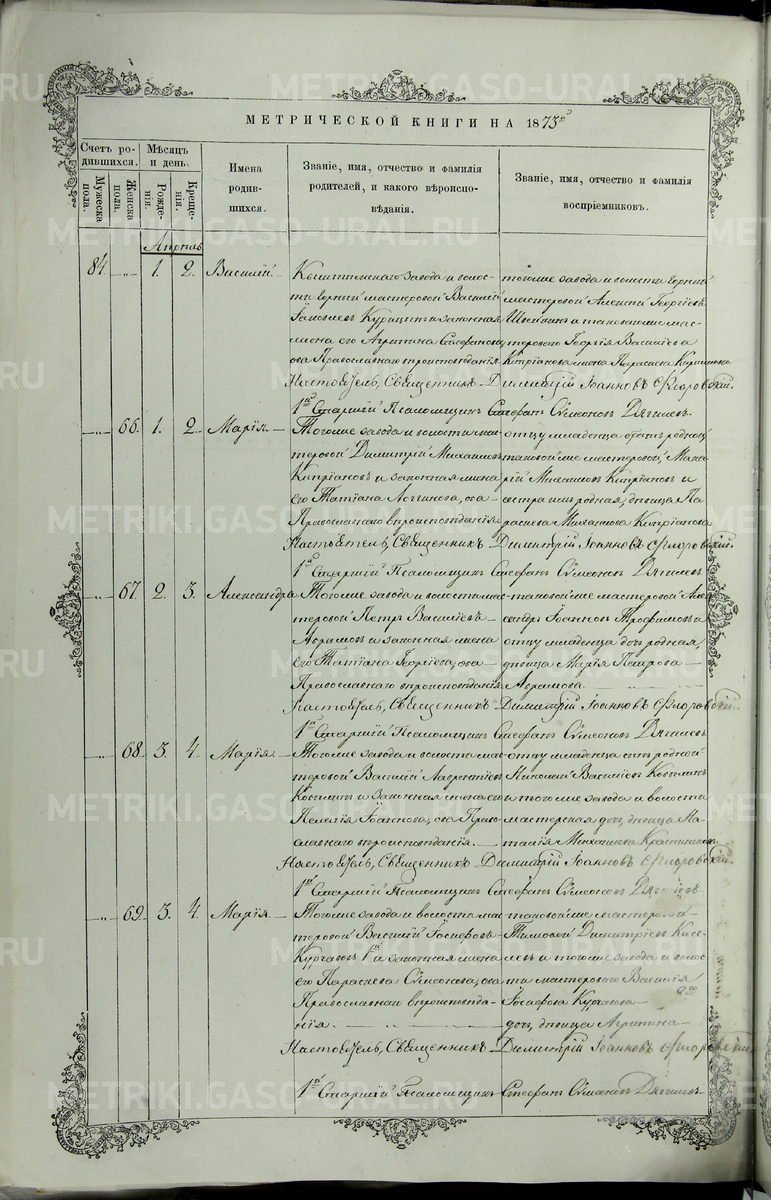 МЕТРИЧЕСКОЙ КНИГИ НА 1875й
Счетъ родившихся.
Мѣсяцъ и день.
Имена родившихся.
Званіе, имя, отчество и фамилія родителей, и какого вѣроисповѣданія.
Званіе, имя, отчество и фамилія воспріемниковъ.
Мужеска пола.
Женска пола.
Рожденія.
Крещенія.
Апрѣль
84. „ 1. 2. Василій.
Кыштымскаго завода и волос-
ти горный мастеровой Василій
Іаковлевъ Курицынъ и законная
жена его Агрипина Стефанова,
оба Православнаго вѣроисповѣданія
тогоже завода и волости горный
мастеровой Алексій Георгіевъ
и таковагоже мас-
тероваго Георгія Василіева
Кипріанова жена Параскева
Настоятель, Священникъ Димитрій Іоанновъ Флоровскій.
1й Старшій Псаломщикъ Стефанъ Сѵмеоновъ Дягилевъ.
„ 66. 1. 2. Марія.
Тогоже завода и волости мас-
теровой Димитрій Михаиловъ
Кипріановъ и законная жена
его Татіана Логинова, оба
Православнаго вѣроисповѣданія
отцу младенца братъ родной,
таковойже мастеровой, Мака-
рій Михаиловъ Кипріановъ и
сестра ихъ родная, дѣвица Па-
раскева Михаилова Кипріанова
Настоятель, Священникъ Димитрій Іоанновъ Флоровскій.
1й Старшій Псаломщикъ Стефанъ Сѵмеоновъ Дягилевъ
„ 67. 2. 3. Александра
Тогоже завода и волости мас-
теровой Петръ Василіевъ
Абрамовъ и законная жена
его Татіана Георгіева, оба
Православнаго вѣроисповѣданія
таковойже мастеровой Алек-
сандръ Іоанновъ Трофимовъ и
отцу младенца дочь родная,
дѣвица Марія Петрова
Абрамова.
Настоятель, Священникъ Димитрій Іоанновъ Флоровскій.
1й Старшій Псаломщикъ Стефанъ Сѵмеоновъ Дягилевъ
„ 68. 3. 4. Марія.
Тогоже завода и волости мас-
теровой Василій Лаврентіевъ
Костинъ и законная жена его
Пелагія Іоаннова, оба Право-
славнаго вѣроисповѣданія.
отцу младенца сынъ родной
Николай Василіевъ Костинъ
и тогоже завода и волости
мастерская дочь, дѣвица На-
талія Михаилова
Настоятель, Священникъ Димитрій Іоанновъ Флоровскій.
1й Старшій Псаломщикъ Стефанъ Сѵмеоновъ Дягилевъ
„ 69. 3. 4. Марія.
Тогоже завода и волости мас-
теровой Василій Іосифовъ
Кургановъ 1й и законная жена
его Параскева Сѵмеонова, оба
Православнаго вѣроисповѣда-
нія.
таковойже мастеровой
Тимофей Димитріевъ Кисе-
левъ и тогоже завода и волос-
ти мастероваго Василія
Іосифова Курганова 2го
дочь, дѣвица Агрипина
Настоятель, Священникъ Димитрій Іоанновъ Флоровскій
1й Старшій Псаломщикъ Стефанъ Сѵмеоновъ Дягилевъ
METRIKI.GASO-URAL.RU